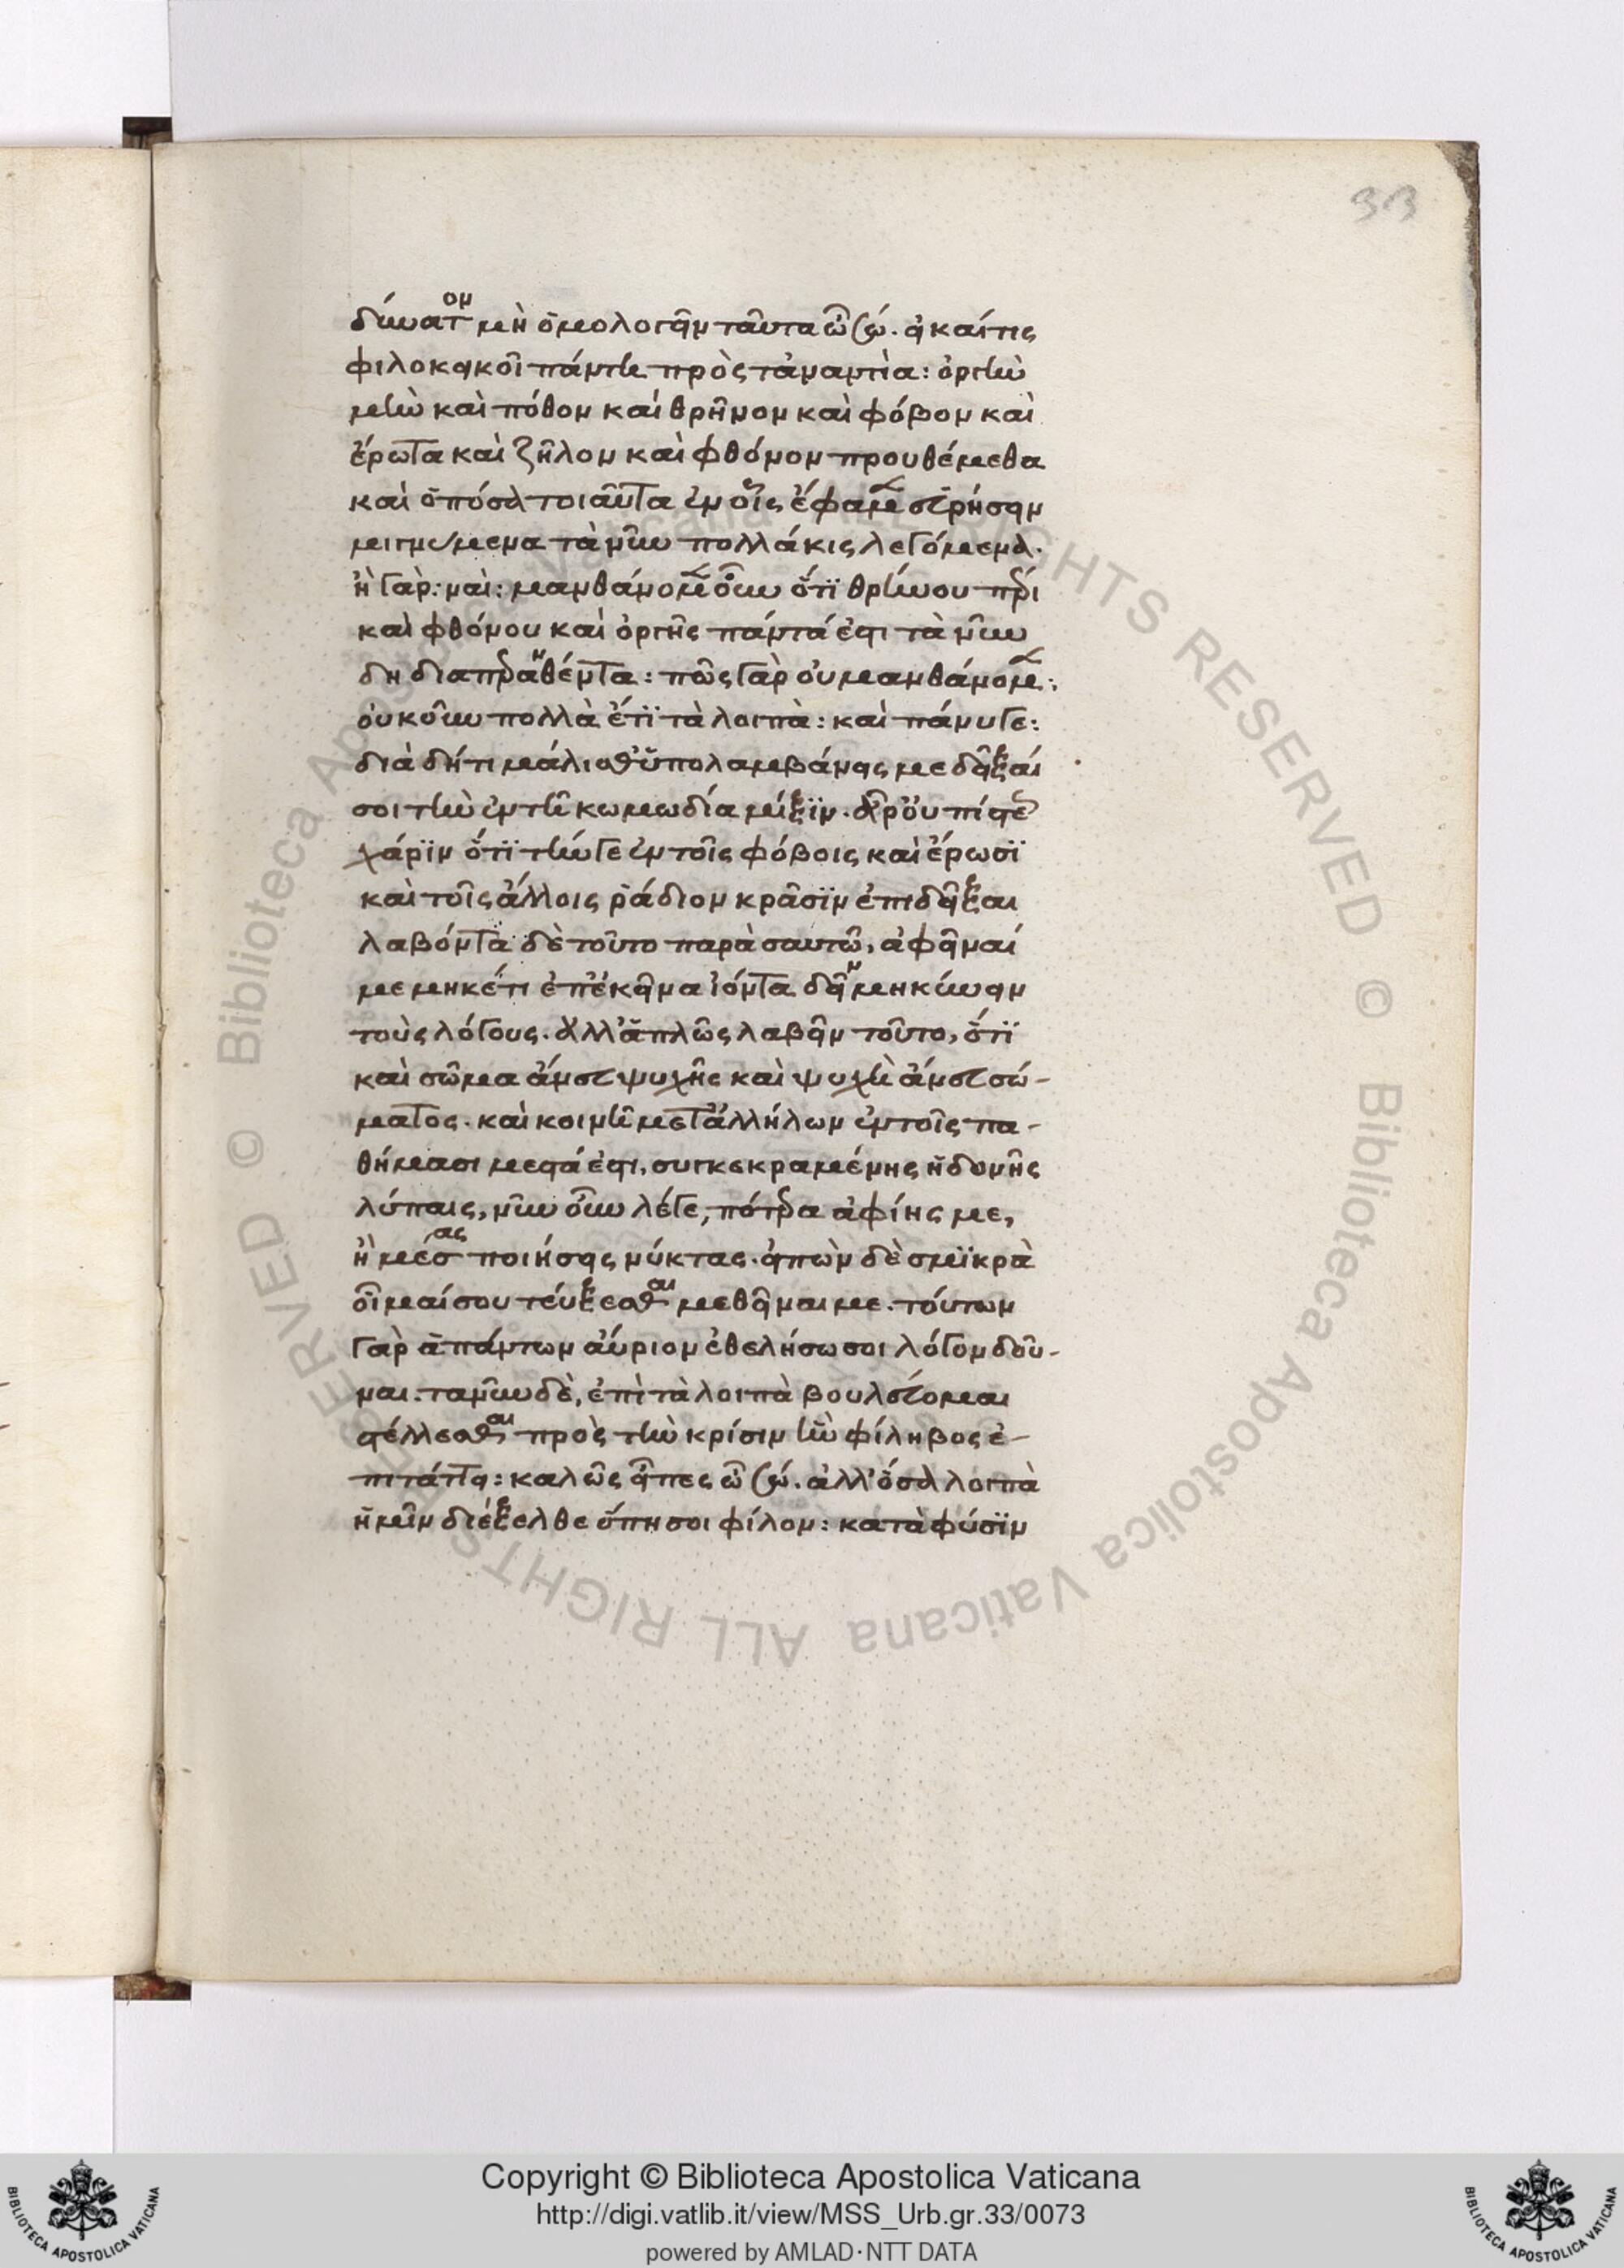 33
δύνατον μὴ ὁμολογεῖν ταῦτα ὦ σώ. εἰ καί τις
φιλονεικοῖ πάντη πρὸς τἀναντία: ὀργὴν
μὴν καὶ πόθον καί θρῆνον καὶ φόβον καὶ
ἔρωτα καὶ ζῆλον καὶ φθόνον προυθέμεθα
καὶ ὁπόσα τοιαῦτα ἐν οἷς ἔφαμεν εὑρήσειν
μιγνύμενα τὰ νῦν πολλάκις λεγόμενα.
ἢ γάρ: ναὶ: μανθάνομεν οὖν ὅτι θρήνου πέρι
καὶ φθόνου καὶ ὀργῆς πάντά ἐστι τὰ νῦν
δη διαπερανθέντα: πῶς γὰρ οὐ μανθάνομεν:
οὐκοῦν πολλὰ ἔτι τὰ λοιπὰ: καὶ πάνυ γε:
διὰ δή τι μάλισθ' ὑπολαμβάνεις με δεῖξαί
σοι τὴν ἐν τῆ κωμωδία μίξιν. ἆρ' οὐ πίστεως
χάριν ὅτι τήν γε ἐν τοῖς φόβοις καὶ ἔρωσι
καὶ τοῖς ἄλλοις ῥάδιον κρᾶσιν ἐπιδεῖξαι
λαβόντα δὲ τοῦτο παρὰ σαυτῶ, ἀφεῖναί
με μηκέτι ἐπ' ἐκεῖνα ἰόντα δεῖν μηκύνειν
τοὺς λόγους. ἀλλ' ἁπλῶς λαβεῖν τοῦτο, ὅτι
καὶ σῶμα ἄνευ ψυχῆς καὶ ψυχὴ ἄνευ σώ-
ματος. καὶ κοινῆ μετ' ἀλλήλων ἐν τοῖς πα-
θήμασι μεστά ἐστι, συγκεκραμένης ἡδονῆς
λύπαις, νῦν οὖν λέγε, πότερα ἀφίης με,
ἢ μέσας ποιήσεις νύκτας. εἰπὼν δὲ σμικρὰ
οἶμαί σου τεύξεσθαι μεθεῖναι με. τούτων
γὰρ ἁπάντων αὔριον ἐθελήσω σοι λόγον δοῦ-
ναι. τανῦν δὲ, ἐπὶ τὰ λοιπὰ βούλομαι
στέλλεσθαι πρὸς τὴν κρίσιν ἣν φίληβος ἐ-
πιτάττει: καλῶς εἶπες ὦ σώ. ἀλλ' ὅσα λοιπὰ
ἡμῖν διέξελθε ὅπη σοι φίλον: κατὰ φύσιν
Copyright © Biblioteca Apostolica Vaticana
http://digi.vatlib.it/view/MSS_Urb.gr.33/0073
powered by AMLAD·NTT DATA
© Biblioteca Apostolica Vaticana ALL RIGHTS RESERVED © Biblioteca Apostolica Vaticana ALL RIGHTS RESERVED